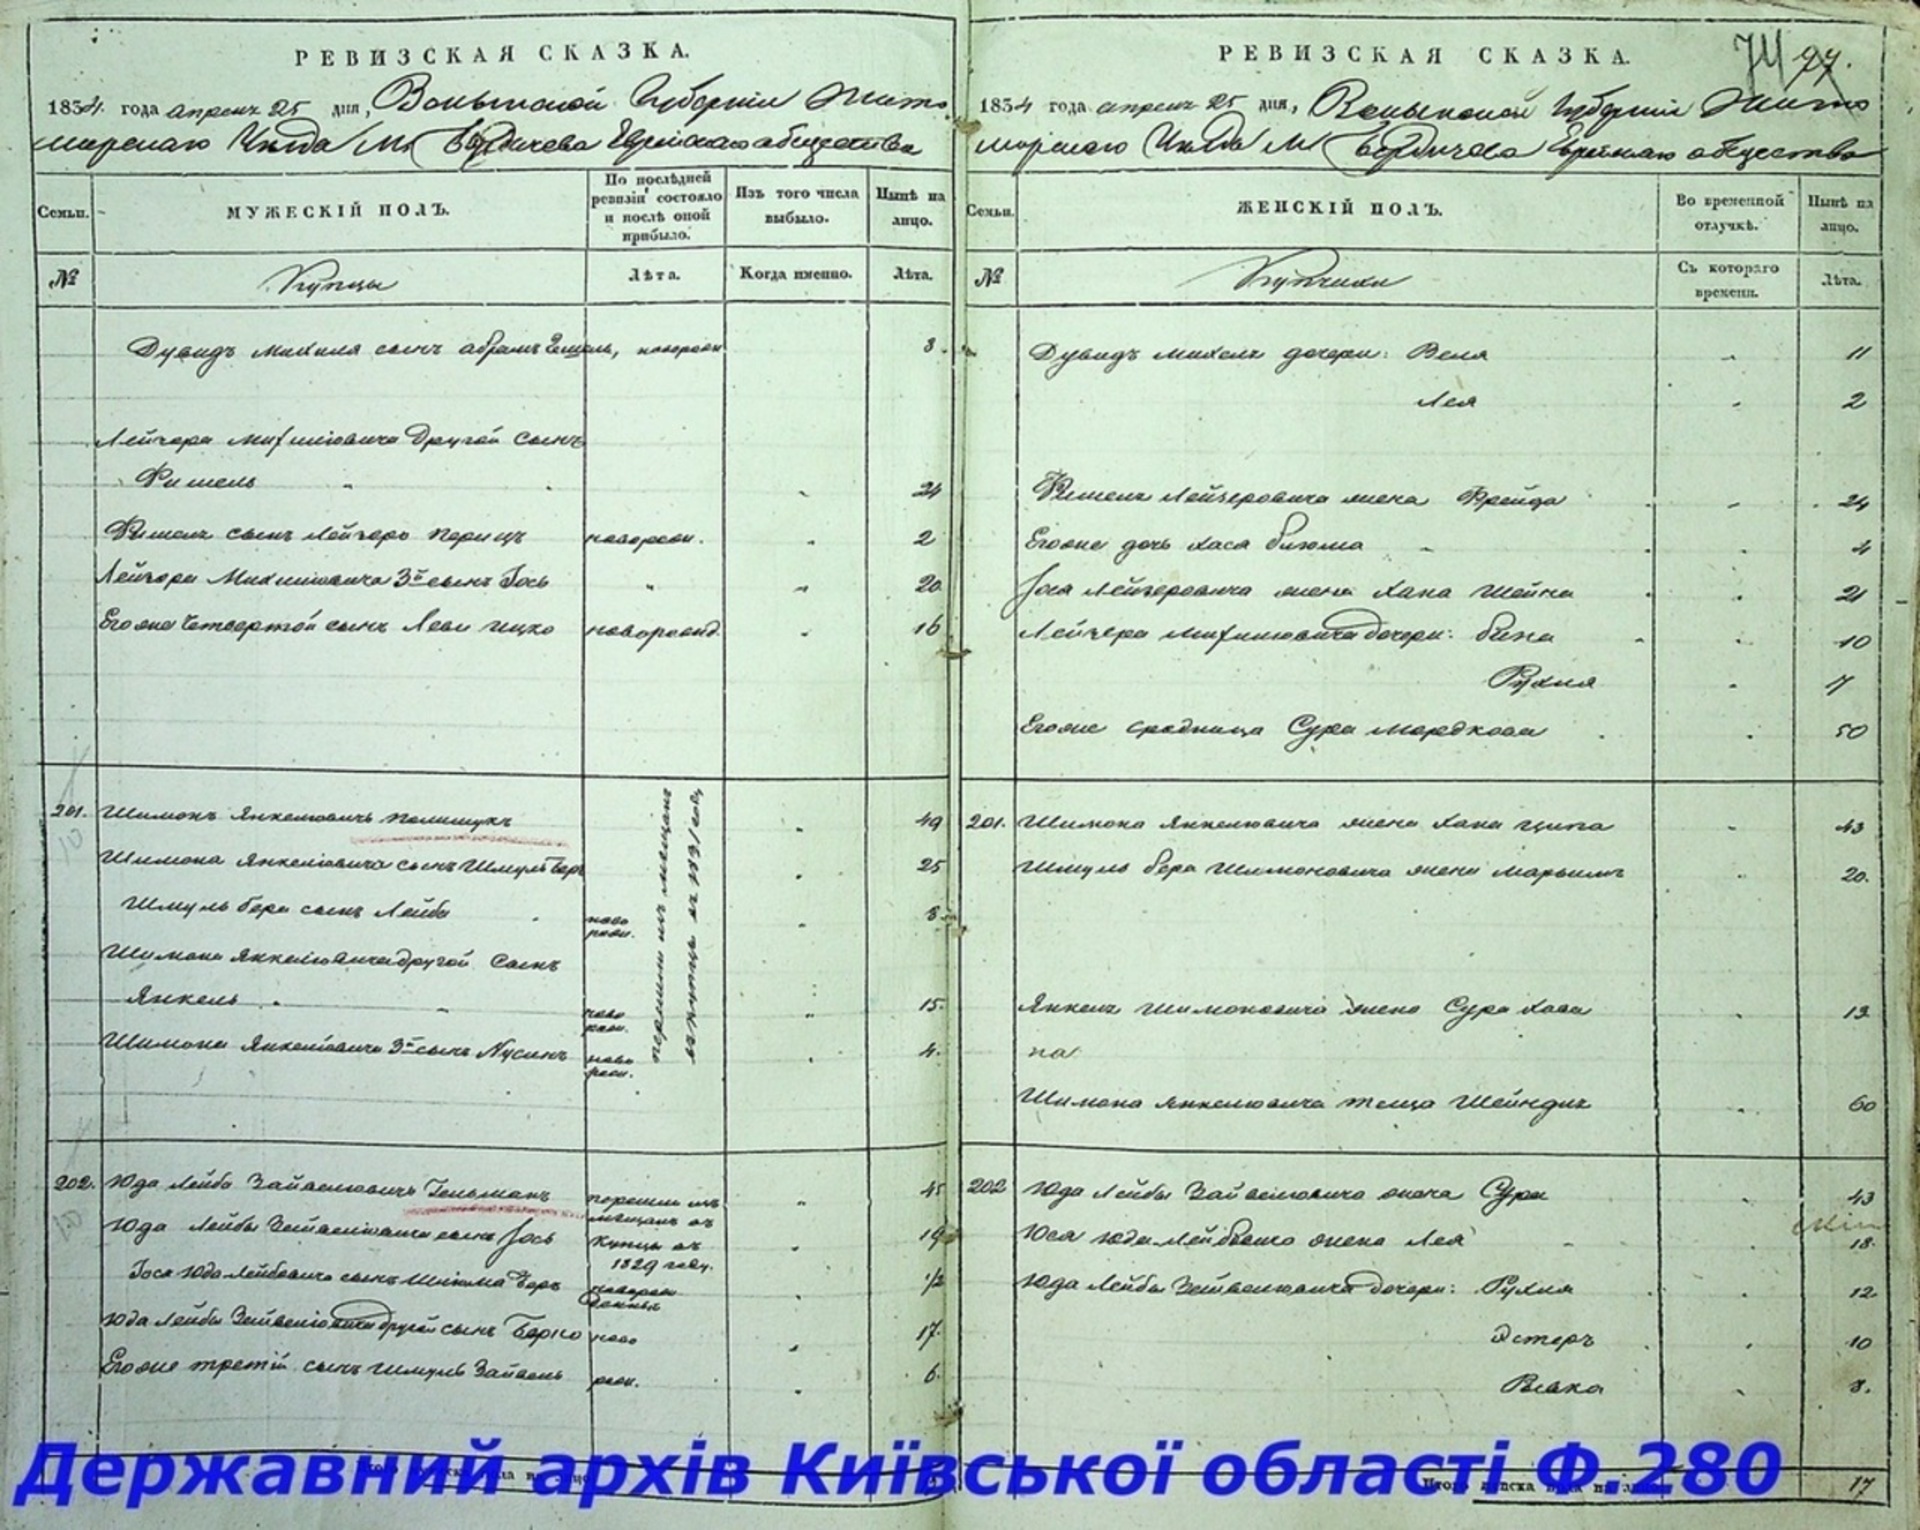 РЕВИЗСКАЯ СКАЗКА.
1834 года апреля 25 дня, Волынской Губернии Жито
мирскаго Уезда М. Бердичева Еврейскаго общества
Семьи.
МУЖЕСКІЙ ПОЛЪ.
По послѣдней ревизіи состояло и послѣ оной прибыло.
Изъ того числа выбыло.
Нынѣ на лицо.
№
Купцы
Лѣта.
Когда именно.
Лѣта.
Дувидъ Михеля сынъ Абрамъ Гешель, новорожд 8
Лейзера другой сынъ
Фишель 24
Фишеля сынъ Лейзеръ Перецъ новорожд. 2
Лейзера 3й сынъ Іось 20
Егоже Четвертой сынъ Леви Ицко новорожд. 16
201. Шимонъ Янкелювичъ Полищукъ 49
Шимона Янкелювича сынъ Шмуль Беръ 25
Шмуль Бера сынъ Лейба ново рожд. 8
Шимона Янкелювича другой Сынъ
Янкель ново рожд. 15
Шимона Янкелювича 3й сынъ Нусинъ ново рожд. 4.
перешли изъ мещанъ
въ купцы въ 1831 году
202. Юда Лейба Зайвелювичъ Гельманъ перешли изъ 45
мещанъ въ
Юда Лейбы Зейвелювича сынъ Іось купцы въ 19
1829 году.
Іося Юда Лейбовича сынъ Шлиома Беръ новорож денный 1/2
Юда Лейбы Зейвелювича другой сынъ Берко ново 17.
Егоже третій сынъ Шмуль Зайвель рож. 6.
РЕВИЗСКАЯ СКАЗКА.
74 97.
1834 года апреля 25 дня, Волынской Губернии Жито
мирскаго Уезда М Бердичева Еврейскаго общества
Семьи.
ЖЕНСКІЙ ПОЛЪ.
Во временной отлучкѣ.
Нынѣ на лицо.
№
Купчихи
Съ котораго времени.
Лѣта.
Дувидъ Михеля дочери: Веля 11
Лея 2
Фишеля Лейзеровича жена Фрейда 24
Егоже дочь Хася Блюма 4
Іося Лейзеровича жена Хана Шейна 21
Лейзера дочери: Бина 10
Рухля 7
Егоже сродница Сура Мордкова 50
201. Шимона Янкелювича жена Хана Ципа 43
Шмуль Бера Шимоновича жена Марьямъ 20.
Янкеля Шимоновича жена Сура Хава 13
на
Шимона Янкелювича теща Шейндля 60
202 Юда Лейбы Зайвелювича жена Сура 43
Іося Юда Лейбовича жена Лея 18.
Юда Лейбы Зейвелювича дочери: Рухля 12.
Эстеръ 10
Ривка 8.
17
Державний архів Київської області Ф.280